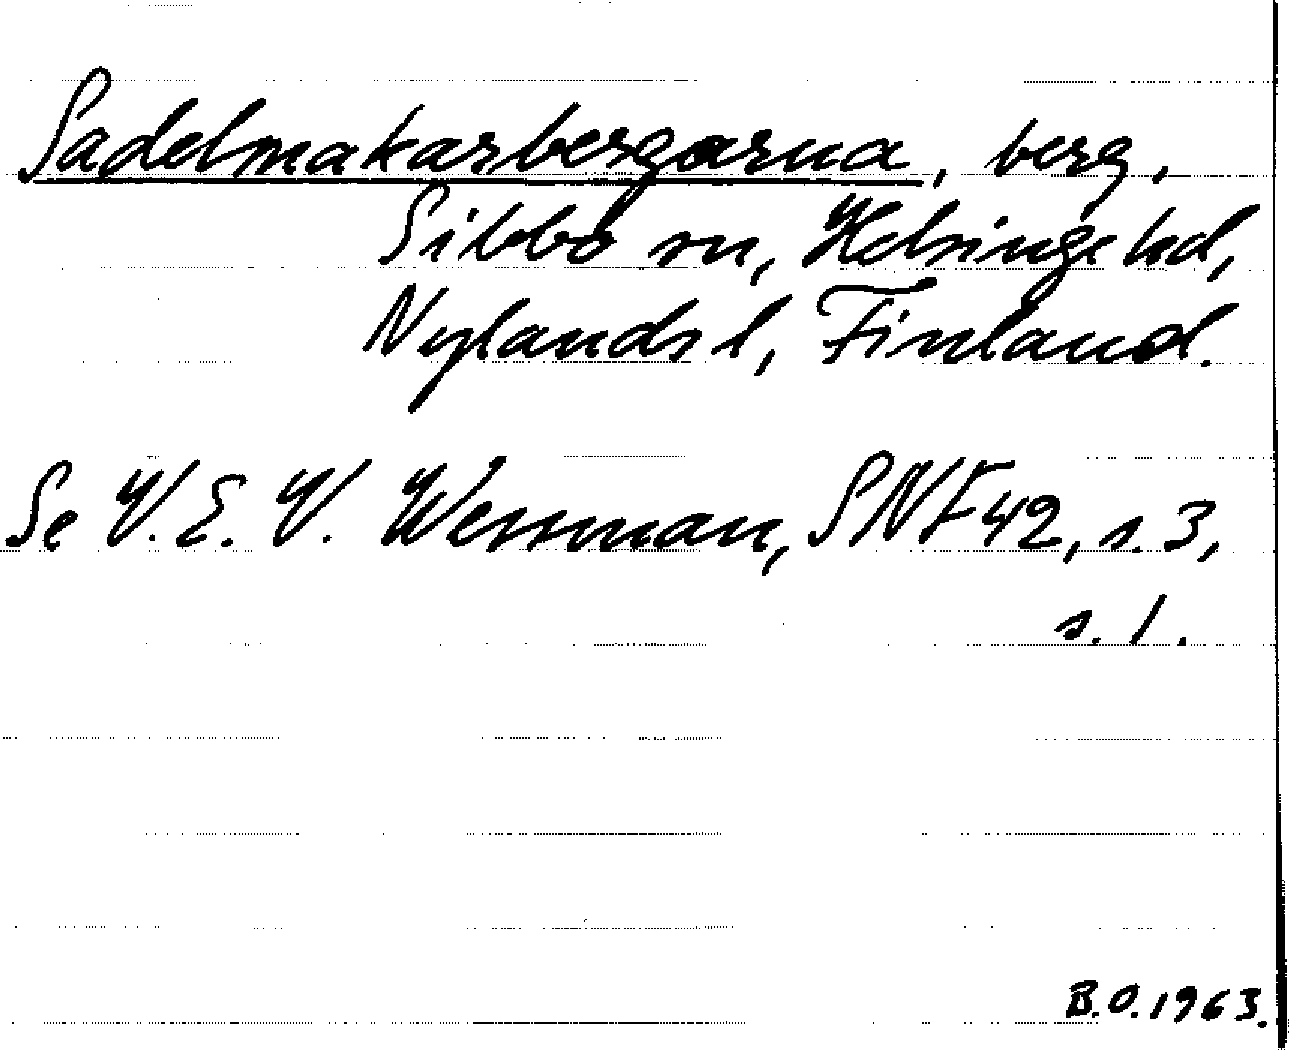 Sadelmakarbergarna, berg,
Sibbo sn, Helsinge hd,
Nylands l, Finland.
Se V. E. V. Wessman, SNF 42, s. 3,
s. 1.
B.O. 1963.